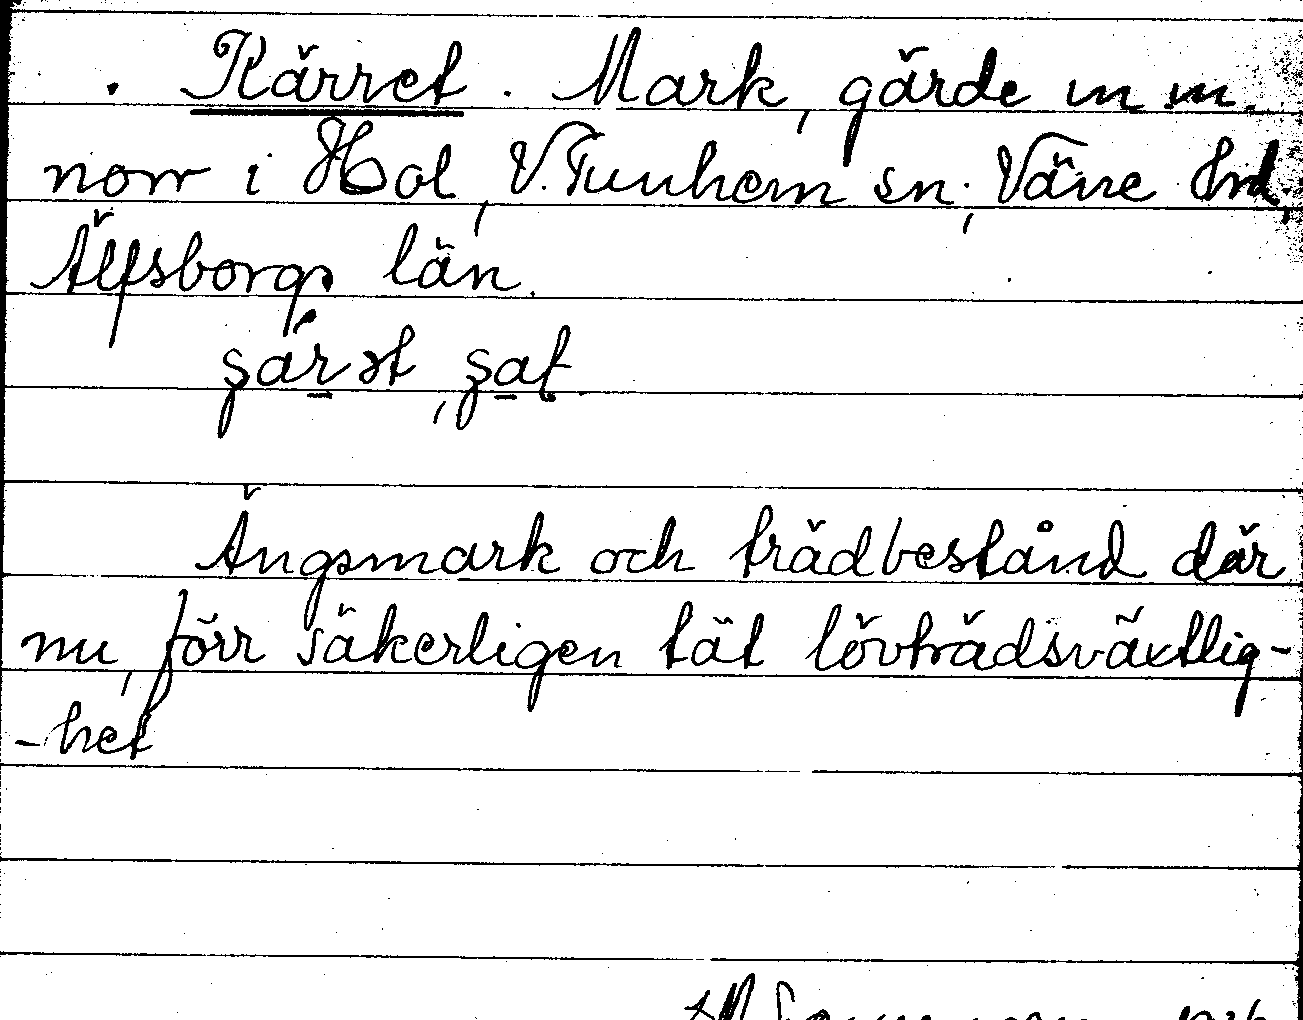 . Kärret. Mark, gärde m m.
norr i Hol, V. Tunhem sn, Väne hd,
Älfsborgs län.

Ängsmark och trädbestånd där
nu, förr säkerligen tät lövträdsväxtlig-
-het